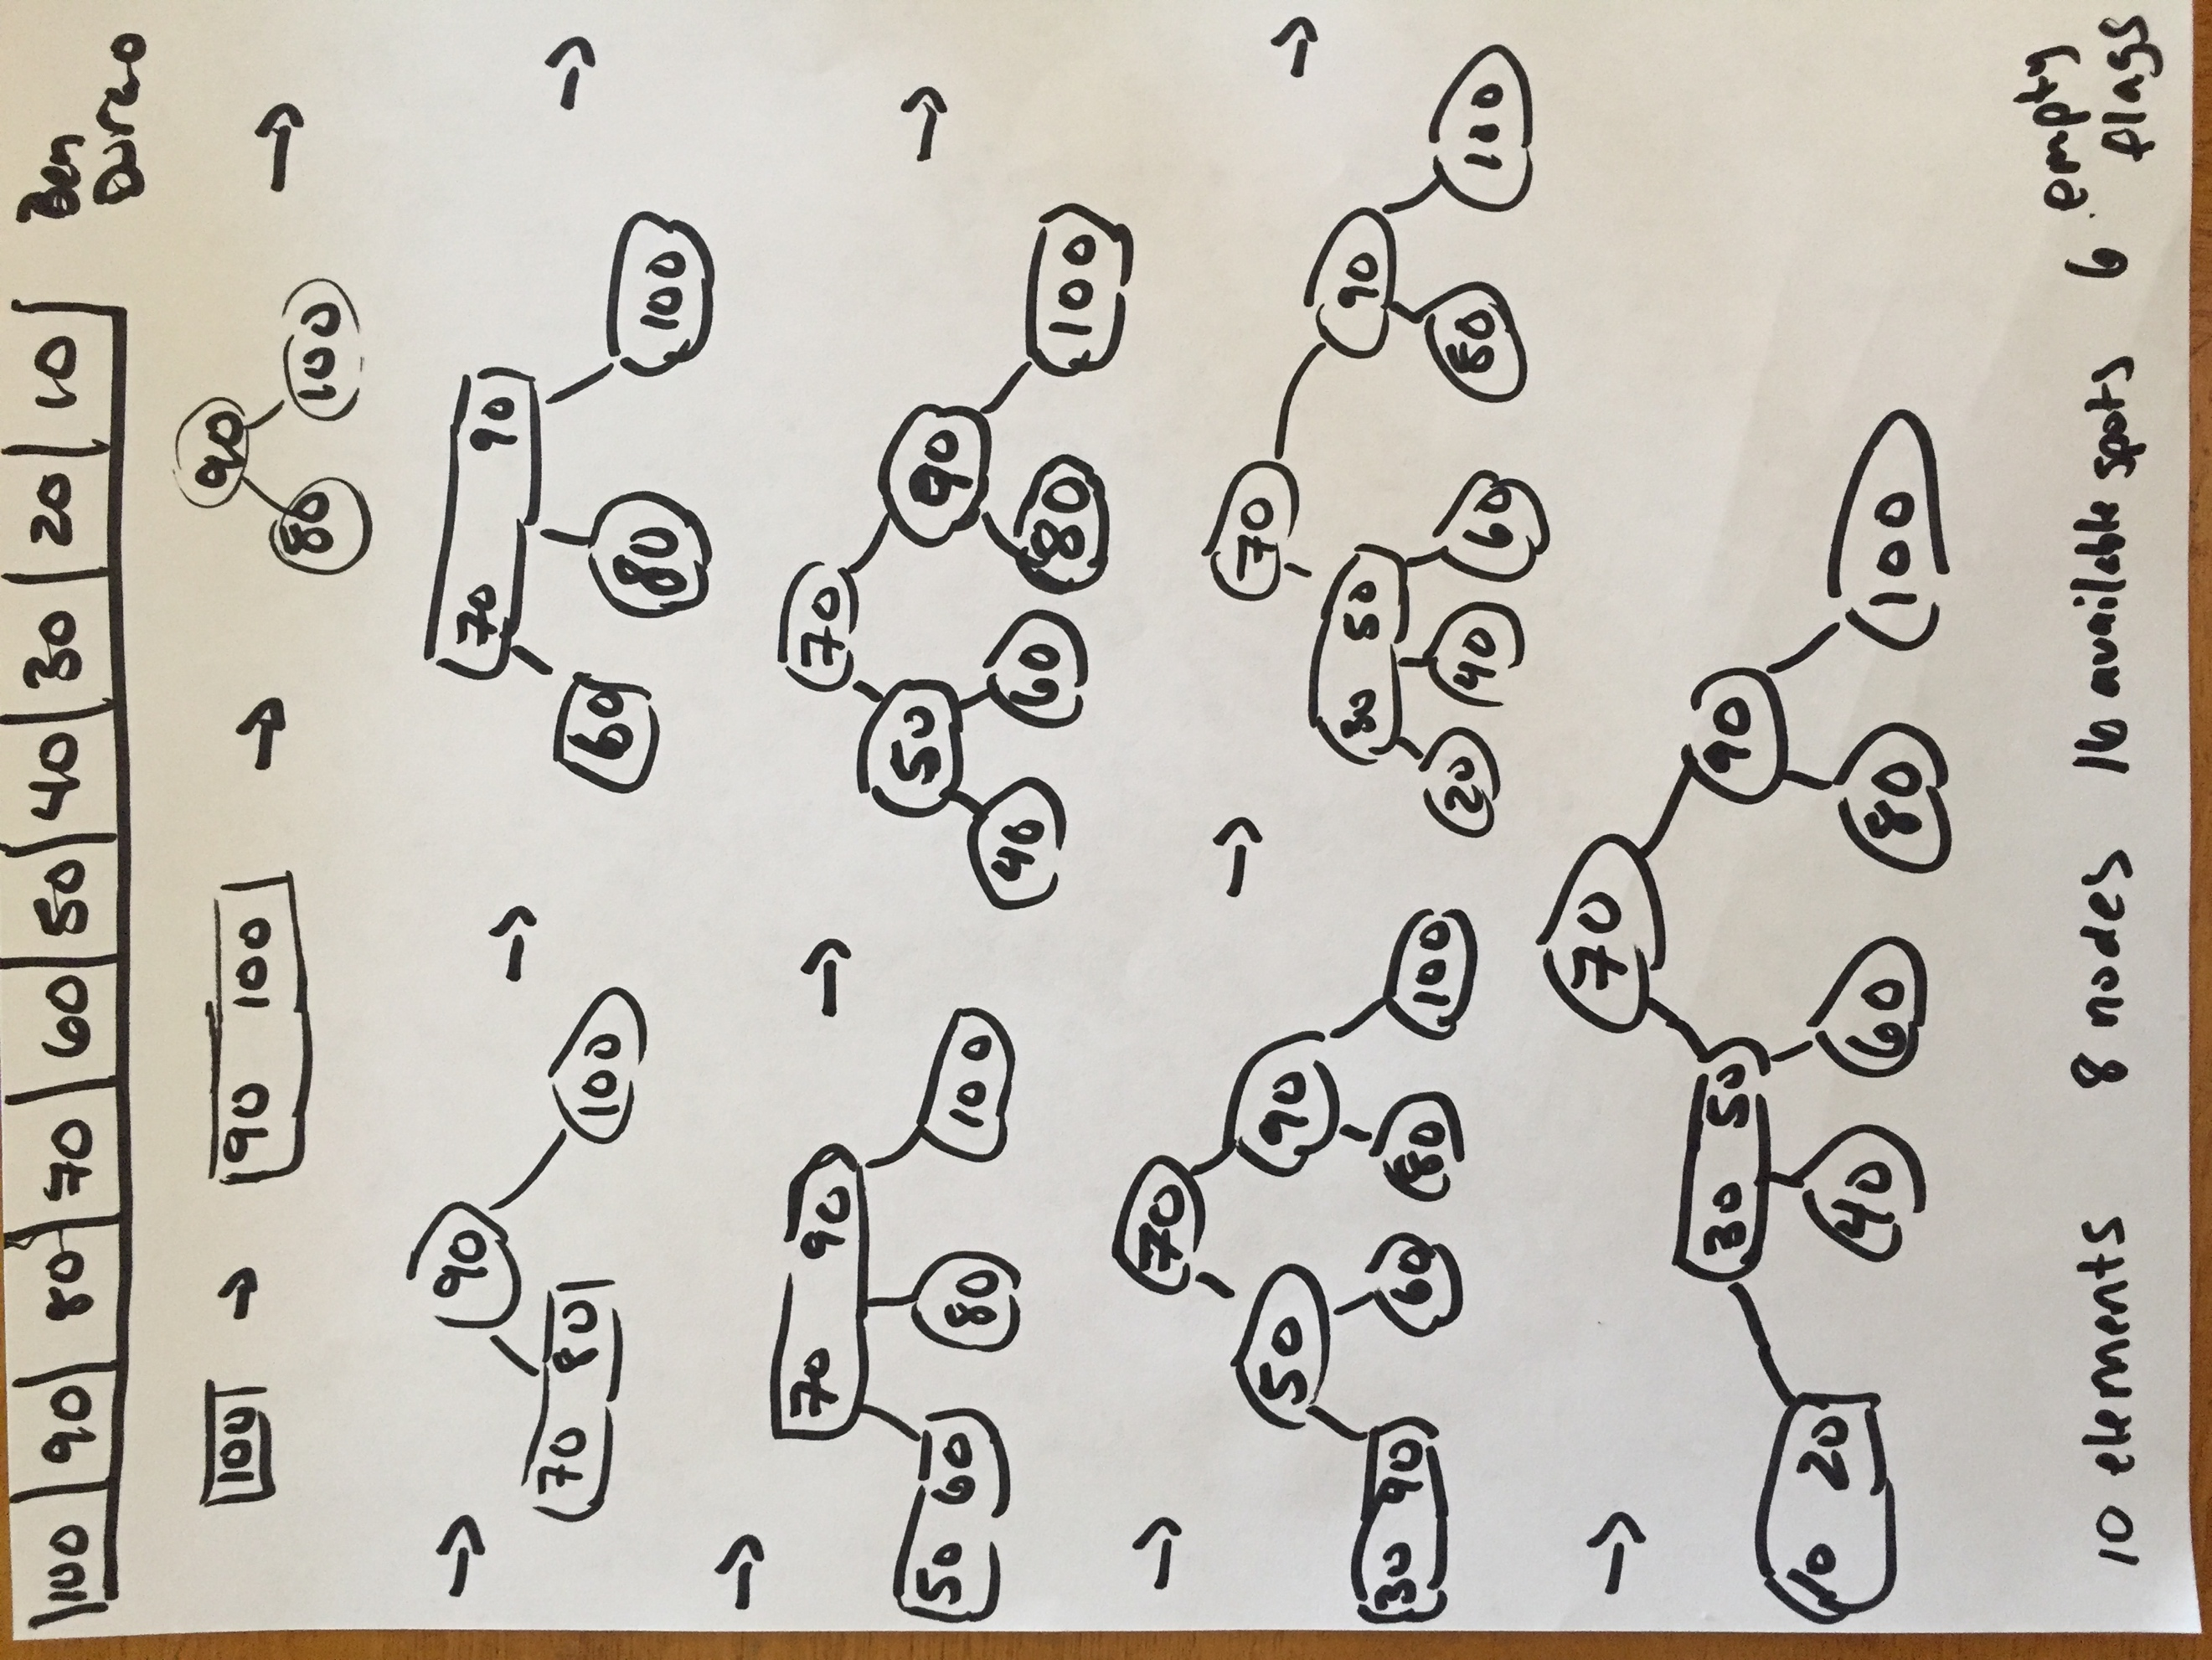 100 90 80 70 60 50 40 30 20 10
Ben
100 → 90 100 →
90
80 100 →
→ 90
70 80 100
→ 70 90
60 80 100 →
→ 70 90
50 60 80 100
→ 70
50 90
40 60 80 100 →
→ 70
50 90
30 40 60 80 100
→ 70
30 50 90
20 40 60 80 100 →
→ 70
30 50 90
10 20 40 60 80 100
10 elements 8 nodes 16 available spots 6 empty
flags